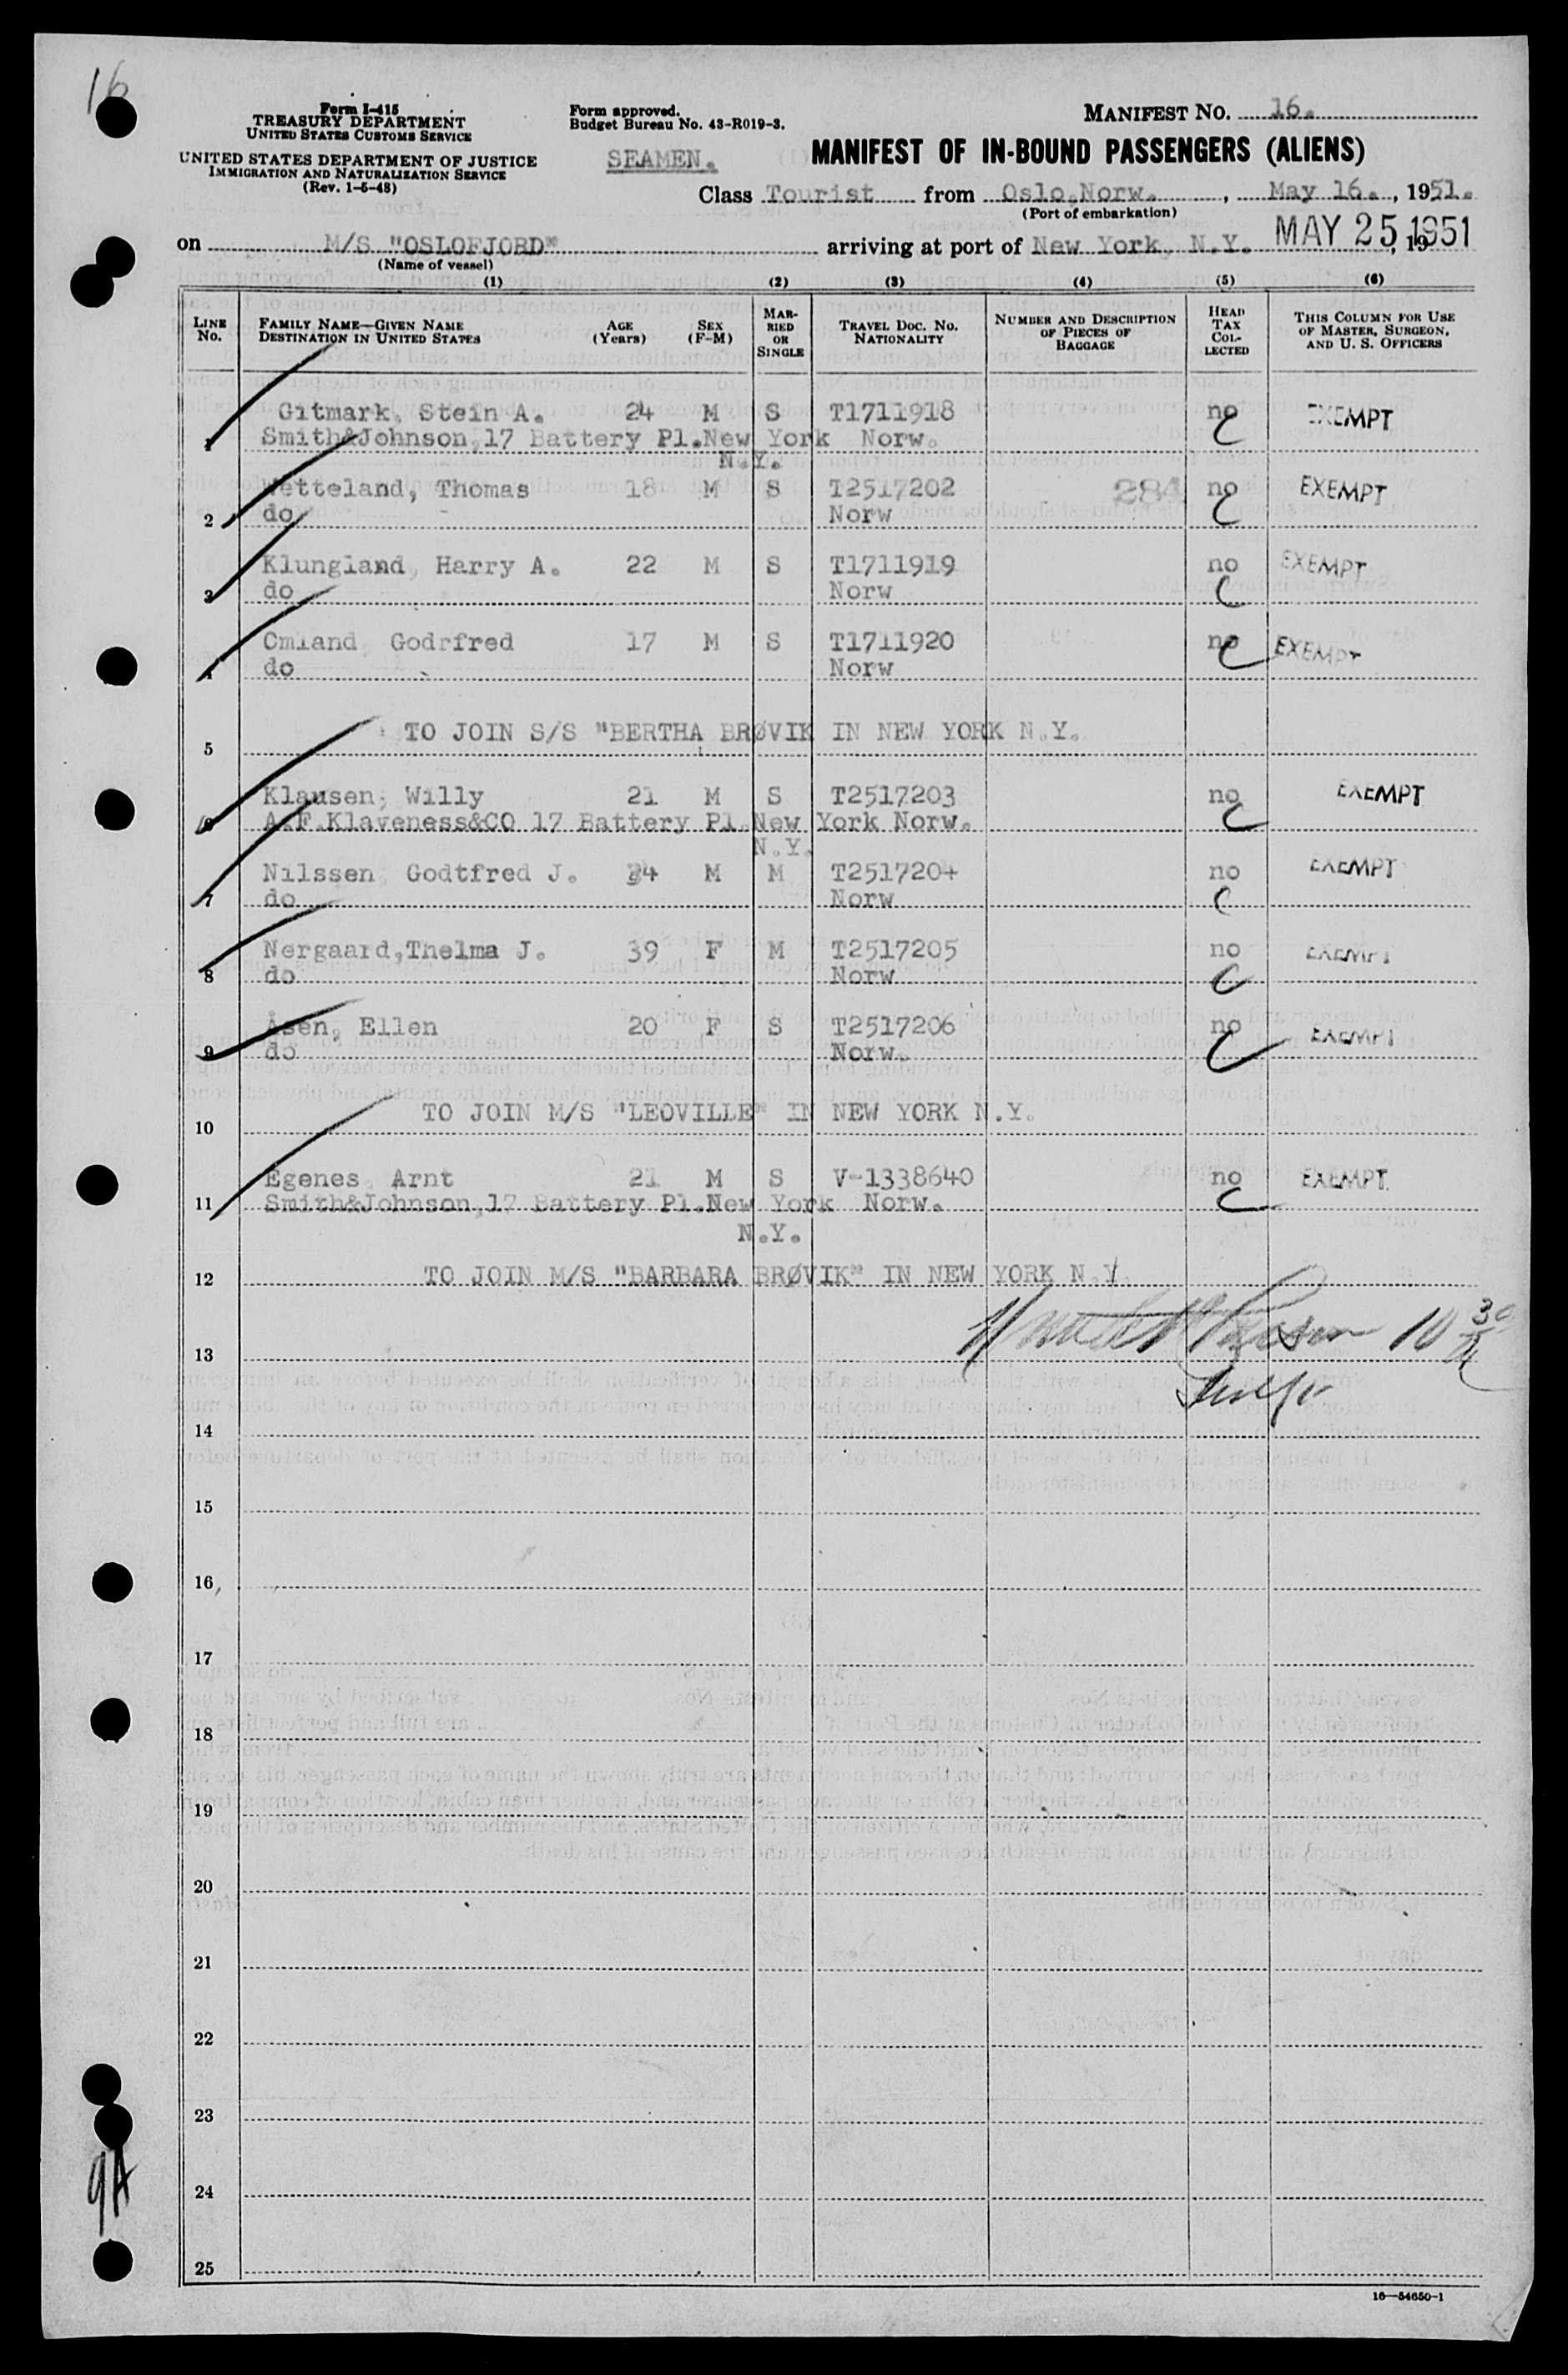 16
Form I-415
TREASURY DEPARTMENT
UNITED STATES CUSTOMS SERVICE
UNITED STATES DEPARTMENT OF JUSTICE
IMMIGRATION AND NATURALIZATION SERVICE
(Rev. 1-5-48)
Form approved.
Budget Bureau No. 43-R019-3.
SEAMEN.
MANIFEST NO. 16.
MANIFEST OF IN-BOUND PASSENGERS (ALIENS)
Class Tourist from Oslo,Norw. , May 16. , 1951.
(Port of embarkation)
on M/S "OSLOFJORD" arriving at port of New York, N.Y. MAY 25 1951 , 19
(Name of vessel)
(1) (2) (3) (4) (5) (6)
LINE No. FAMILY NAME—GIVEN NAME DESTINATION IN UNITED STATES AGE (Years) SEX (F-M) MARRIED OR SINGLE TRAVEL DOC. NO. NATIONALITY NUMBER AND DESCRIPTION OF PIECES OF BAGGAGE HEAD TAX COLLECTED THIS COLUMN FOR USE OF MASTER, SURGEON, AND U. S. OFFICERS
Gitmark, Stein A. 24 M S T1711918 no EXEMPT
1 Smith&Johnson,17 Battery Pl.New York Norw.
N.Y.
Vetteland, Thomas 18 M S T2517202 284 no EXEMPT
2 do Norw
Klungland, Harry A. 22 M S T1711919 no EXEMPT
3 do Norw
Omland, Godrfred 17 M S T1711920 no EXEMPT
4 do Norw
TO JOIN S/S "BERTHA BRØVIK IN NEW YORK N.Y.
5
Klausen, Willy 21 M S T2517203 no EXEMPT
6 A.F.Klaveness&CO 17 Battery Pl.New York Norw.
N.Y.
Nilssen, Godtfred J. 34 M M T2517204 no EXEMPT
7 do Norw
Nergaard,Thelma J. 39 F M T2517205 no EXEMPT
8 do Norw
Åsen, Ellen 20 F S T2517206 no EXEMPT
9 do Norw.
TO JOIN M/S "LEOVILLE" IN NEW YORK N.Y.
10
Egenes, Arnt 21 M S V-1338640 no EXEMPT
11 Smith&Johnson,17 Battery Pl.New York Norw.
N.Y.
12 TO JOIN M/S "BARBARA BRØVIK" IN NEW YORK N.Y.
10 30
13
14
15
16
17
18
19
20
21
22
23
24
25
9A
16—54650-1